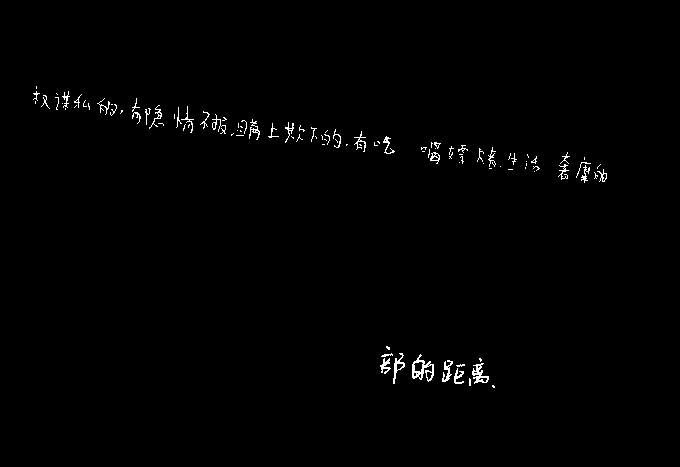 权谋私的,有隐情不报、瞒上欺下的,有吃喝嫖赌、生活奢靡的
部的距离、